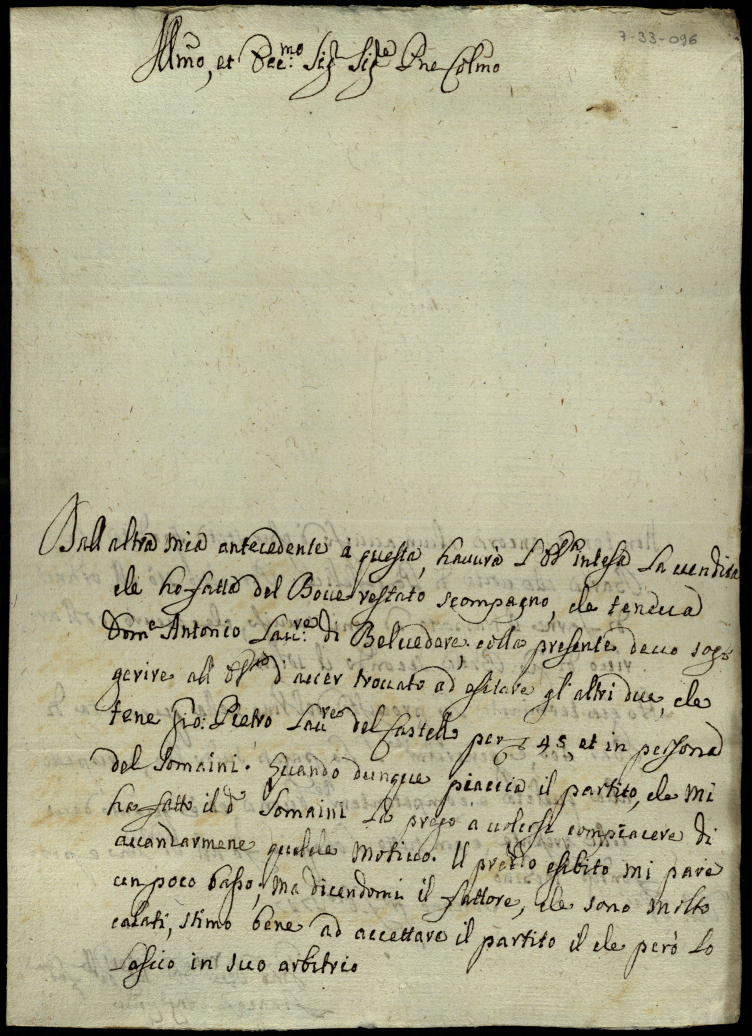 7-33-096
Illmo, et Ecc.mo Sig.r Sig.re Pne Colmo
Dall altra mia antecedente à questa, havurà L'Ill.a intesa La vendita
che ho fatta del Boue restato scompagno, che teneua
Dom.o Antonio Lau.re di Beluedere; colla presente deuo sog=
gerire all d'auer trouato ad esitare gl'altri due, che
tene Gio: Pietro Lau.re del Castell per 45, et in persona
del Somaini. Quando dunque piaccia il partito, che mi
ha fatto il d.o Somaini La prego à volersi compiacere di
auanzarmene qualche motiuo. Il prezzo esibito mi pare
un poco basso, ma dicendomi il fattore, che sono molto
calati, stimo bene ad accettare il partito il che però Lo
Lascio in suo arbitrio